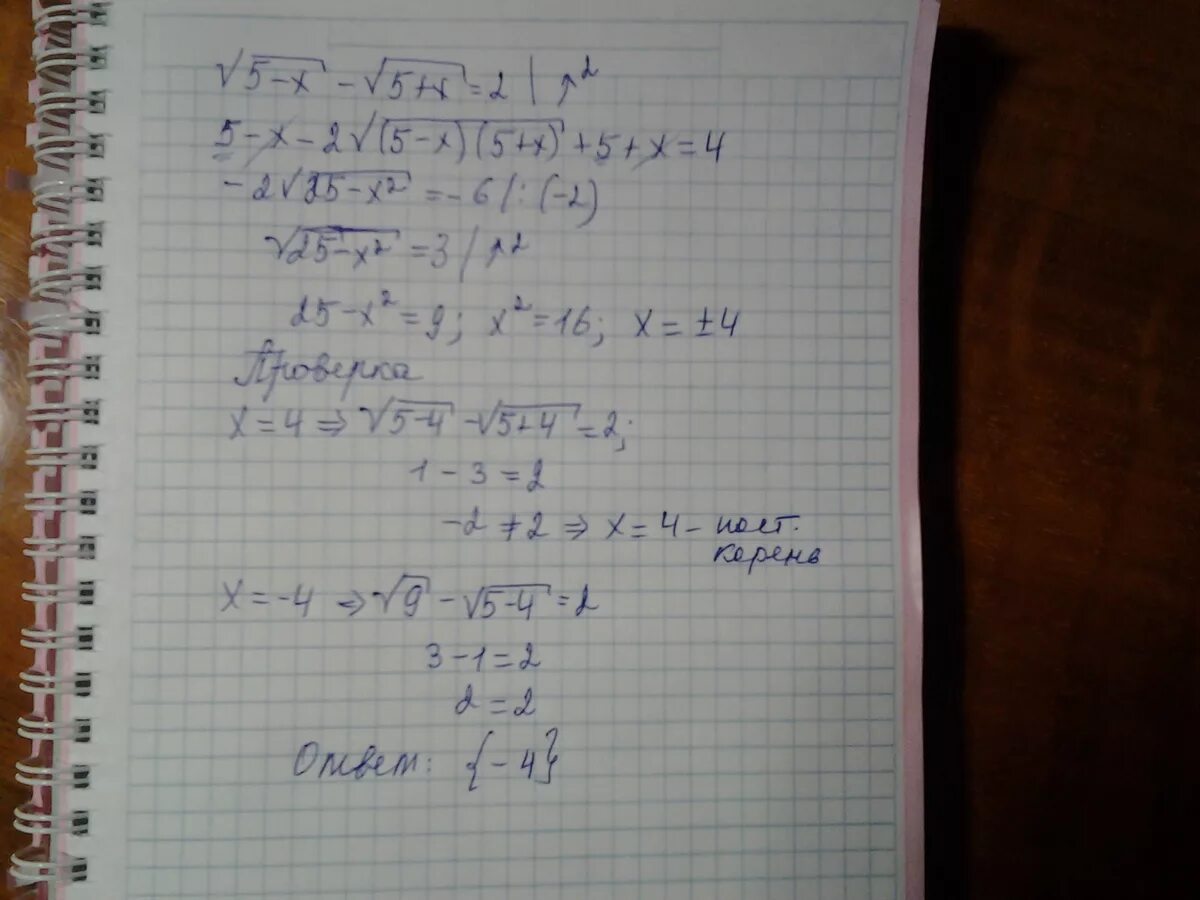 √(5-x) - √(5+x) = 2 | ↑²
5 - x - 2√((5-x)(5+x)) + 5 + x = 4
-2√(25-x²) = -6 | : (-2)
√(25-x²) = 3 | ↑²
25 - x² = 9; x² = 16; x = ±4
Проверка
x = 4 ⇒ √(5-4) - √(5+4) = 2;
1 - 3 = 2
-2 ≠ 2 ⇒ x = 4 - пост.
корень
x = -4 ⇒ √9 - √(5-4) = 2
3 - 1 = 2
2 = 2
Ответ: {-4}